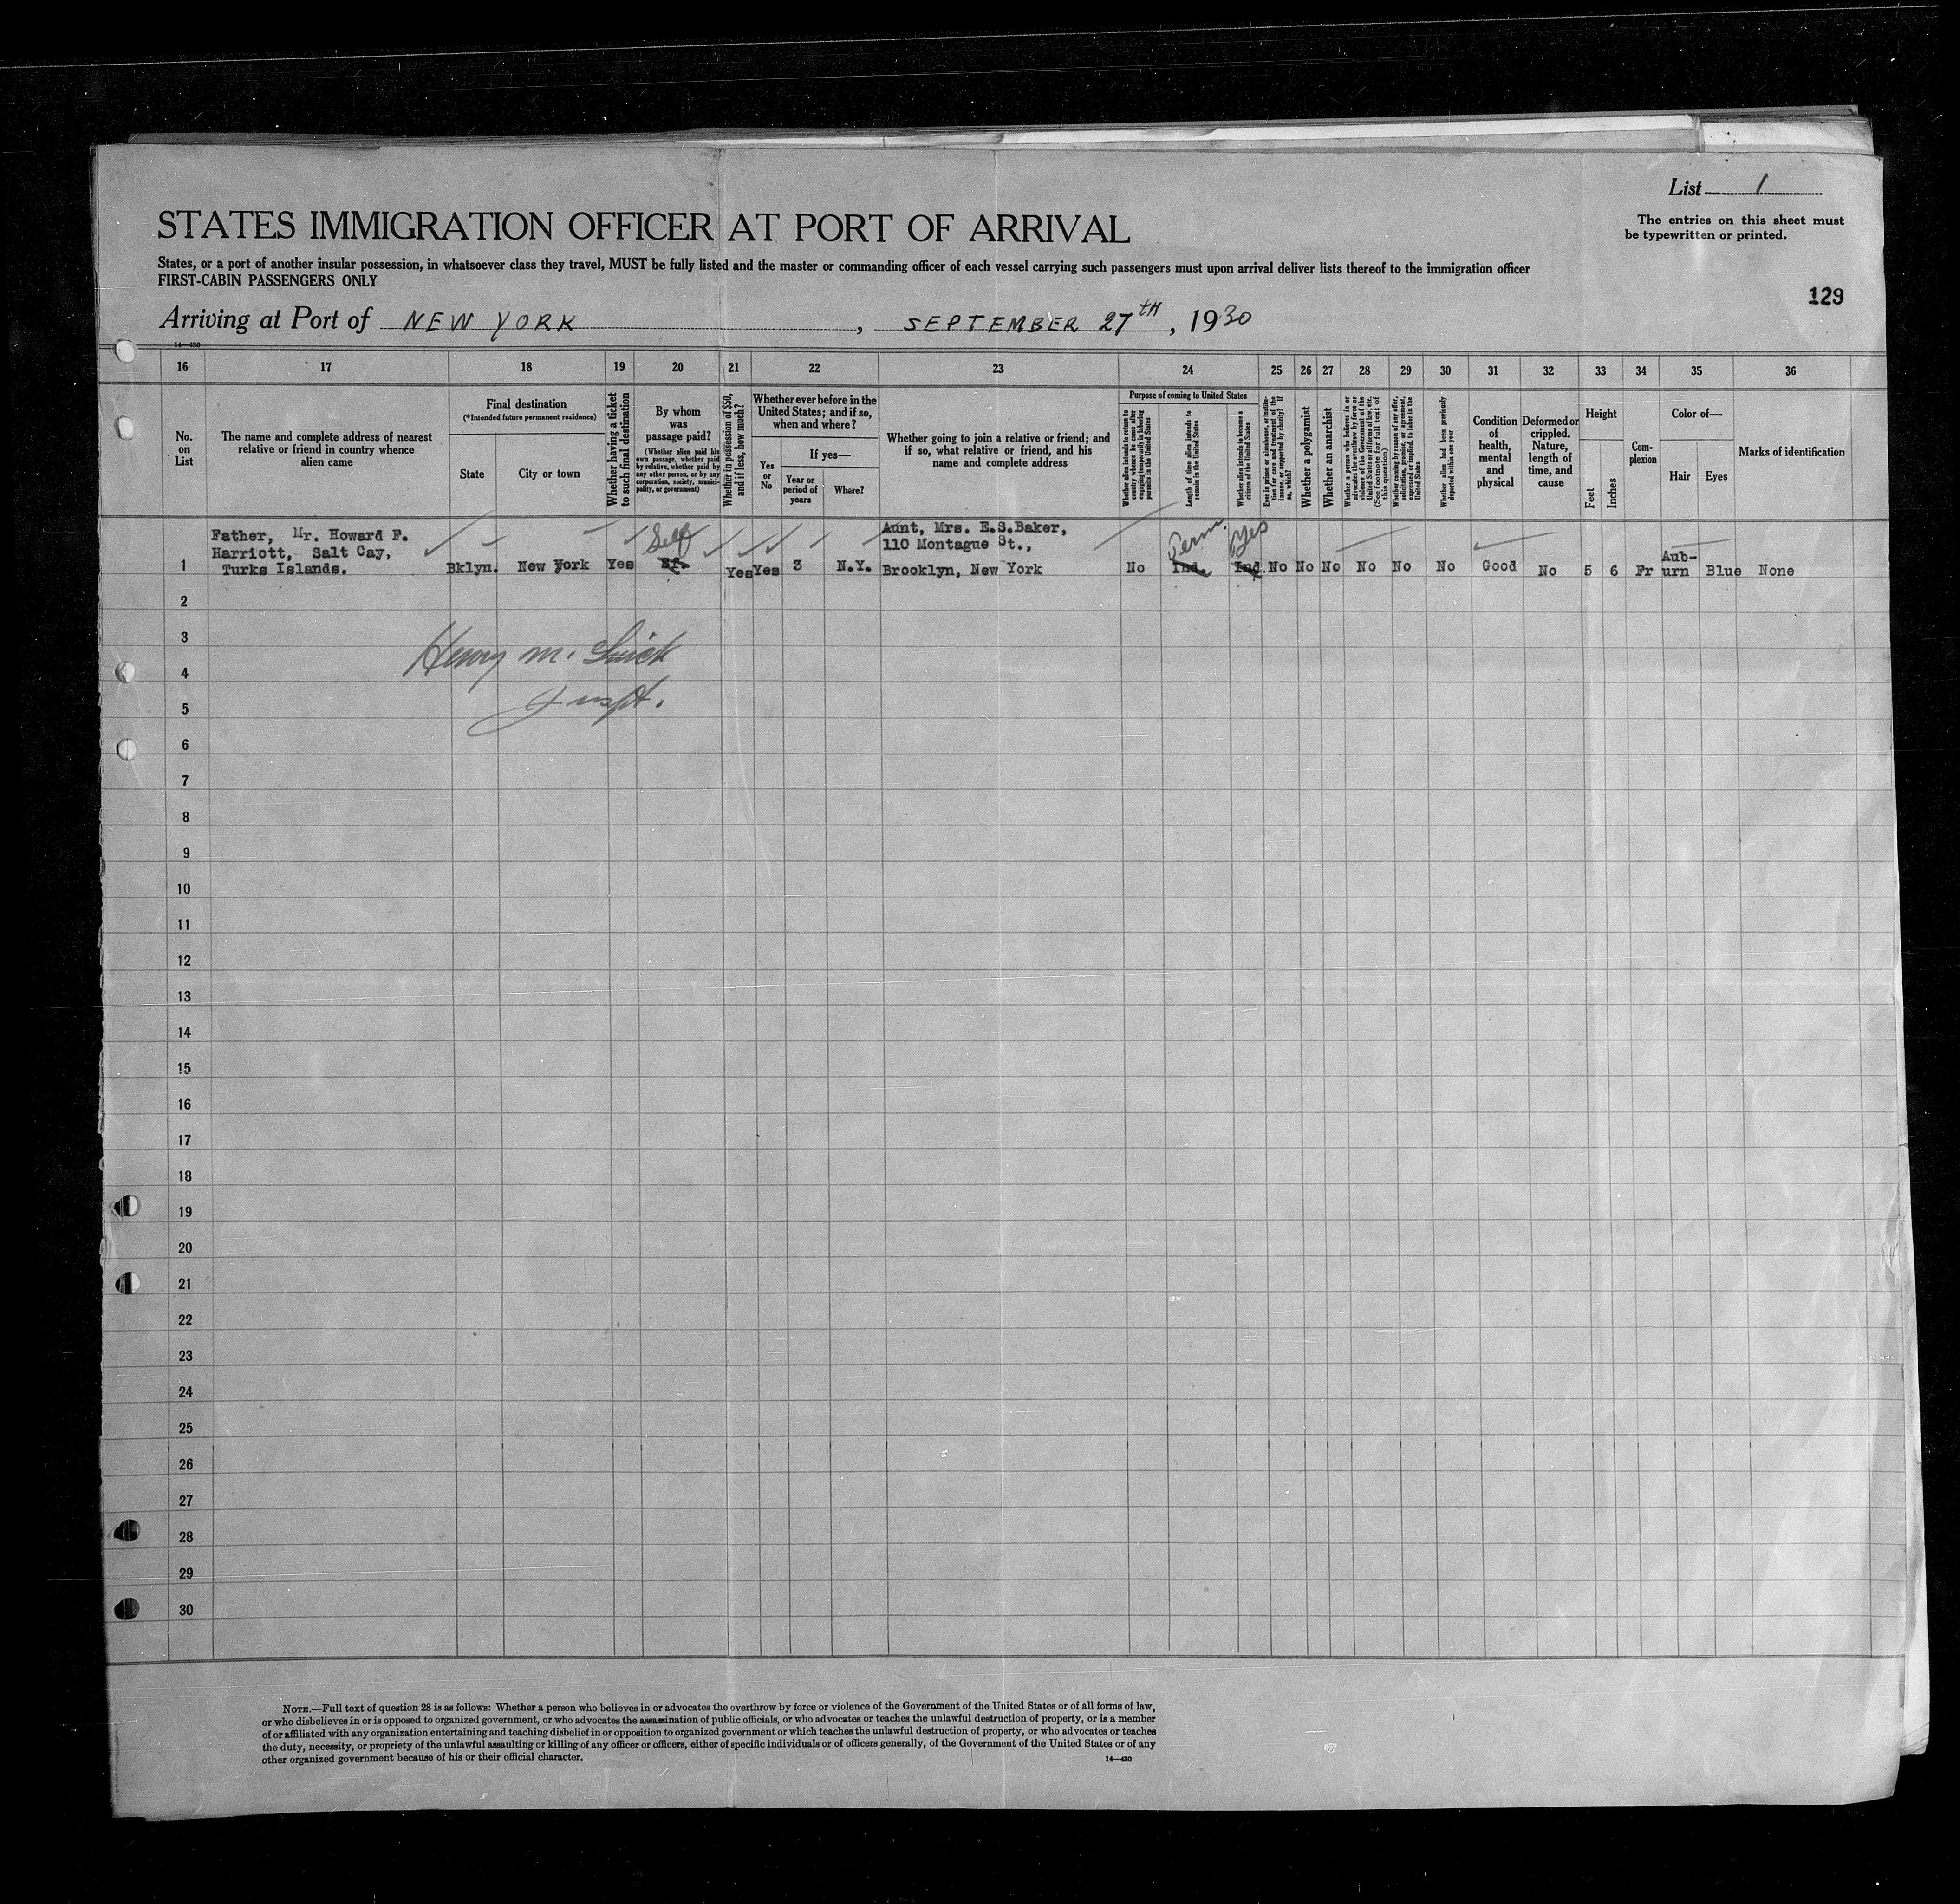 List 1
The entries on this sheet must
be typewritten or printed.
STATES IMMIGRATION OFFICER AT PORT OF ARRIVAL
States, or a port of another insular possession, in whatsoever class they travel, MUST be fully listed and the master or commanding officer of each vessel carrying such passengers must upon arrival deliver lists thereof to the immigration officer
FIRST-CABIN PASSENGERS ONLY
129
Arriving at Port of NEW YORK, SEPTEMBER 27TH, 1930
14—430
16 17 18 19 20 21 22 23 24 25 26 27 28 29 30 31 32 33 34 35 36
No.
on
List
The name and complete address of nearest
relative or friend in country whence
alien came
Final destination
(*Intended future permanent residence)
State
City or town
Whether having a ticket
to such final destination
By whom
was
passage paid?
(Whether alien paid his
own passage, whether paid
by relative, whether paid by
any other person, or by any
corporation, society, munici-
pality, or government)
Whether in possession of $50,
and if less, how much?
Whether ever before in the
United States; and if so,
when and where?
Yes
or
No
If yes—
Year or
period of
years
Where?
Whether going to join a relative or friend; and
if so, what relative or friend, and his
name and complete address
Purpose of coming to United States
Whether alien intends to return to
country whence he came after
engaging temporarily in laboring
pursuits in the United States
Length of time alien intends to
remain in the United States
Whether alien intends to become a
citizen of the United States
Ever in prison or almshouse, or institu-
tion for care and treatment of the
insane, or supported by charity? If
so, which?
Whether a polygamist
Whether an anarchist
Whether a person who believes in or
advocates the overthrow by force or
violence of the Government of the
United States or all forms of law, etc.
(See footnote for full text of
this question)
Whether coming by reason of any offer,
solicitation, promise, or agreement,
expressed or implied, to labor in the
United States
Whether alien had been previously
deported within one year
Condition
of
health,
mental
and
physical
Deformed or
crippled.
Nature,
length of
time, and
cause
Height
Feet
Inches
Com-
plexion
Color of—
Hair
Eyes
Marks of identification
Father, Mr. Howard F.
Harriott, Salt Cay,
Turks Islands.
Self
Aunt, Mrs. E.S.Baker,
110 Montague St.,
Perm. Yes
1 Bklyn. New York Yes Yes Yes 3 N.Y. Brooklyn, New York No Ind. Ind. No No No No No No Good No 5 6 Fr Aub-
urn Blue None
2
3
Henry M.
4
Inspt.
5
6
7
8
9
10
11
12
13
14
15
16
17
18
19
20
21
22
23
24
25
26
27
28
29
30
NOTE.—Full text of question 28 is as follows: Whether a person who believes in or advocates the overthrow by force or violence of the Government of the United States or of all forms of law,
or who disbelieves in or is opposed to organized government, or who advocates the assassination of public officials, or who advocates or teaches the unlawful destruction of property, or is a member
of or affiliated with any organization entertaining and teaching disbelief in or opposition to organized government or which teaches the unlawful destruction of property, or who advocates or teaches
the duty, necessity, or propriety of the unlawful assaulting or killing of any officer or officers, either of specific individuals or of officers generally, of the Government of the United States or of any
other organized government because of his or their official character.
14—430